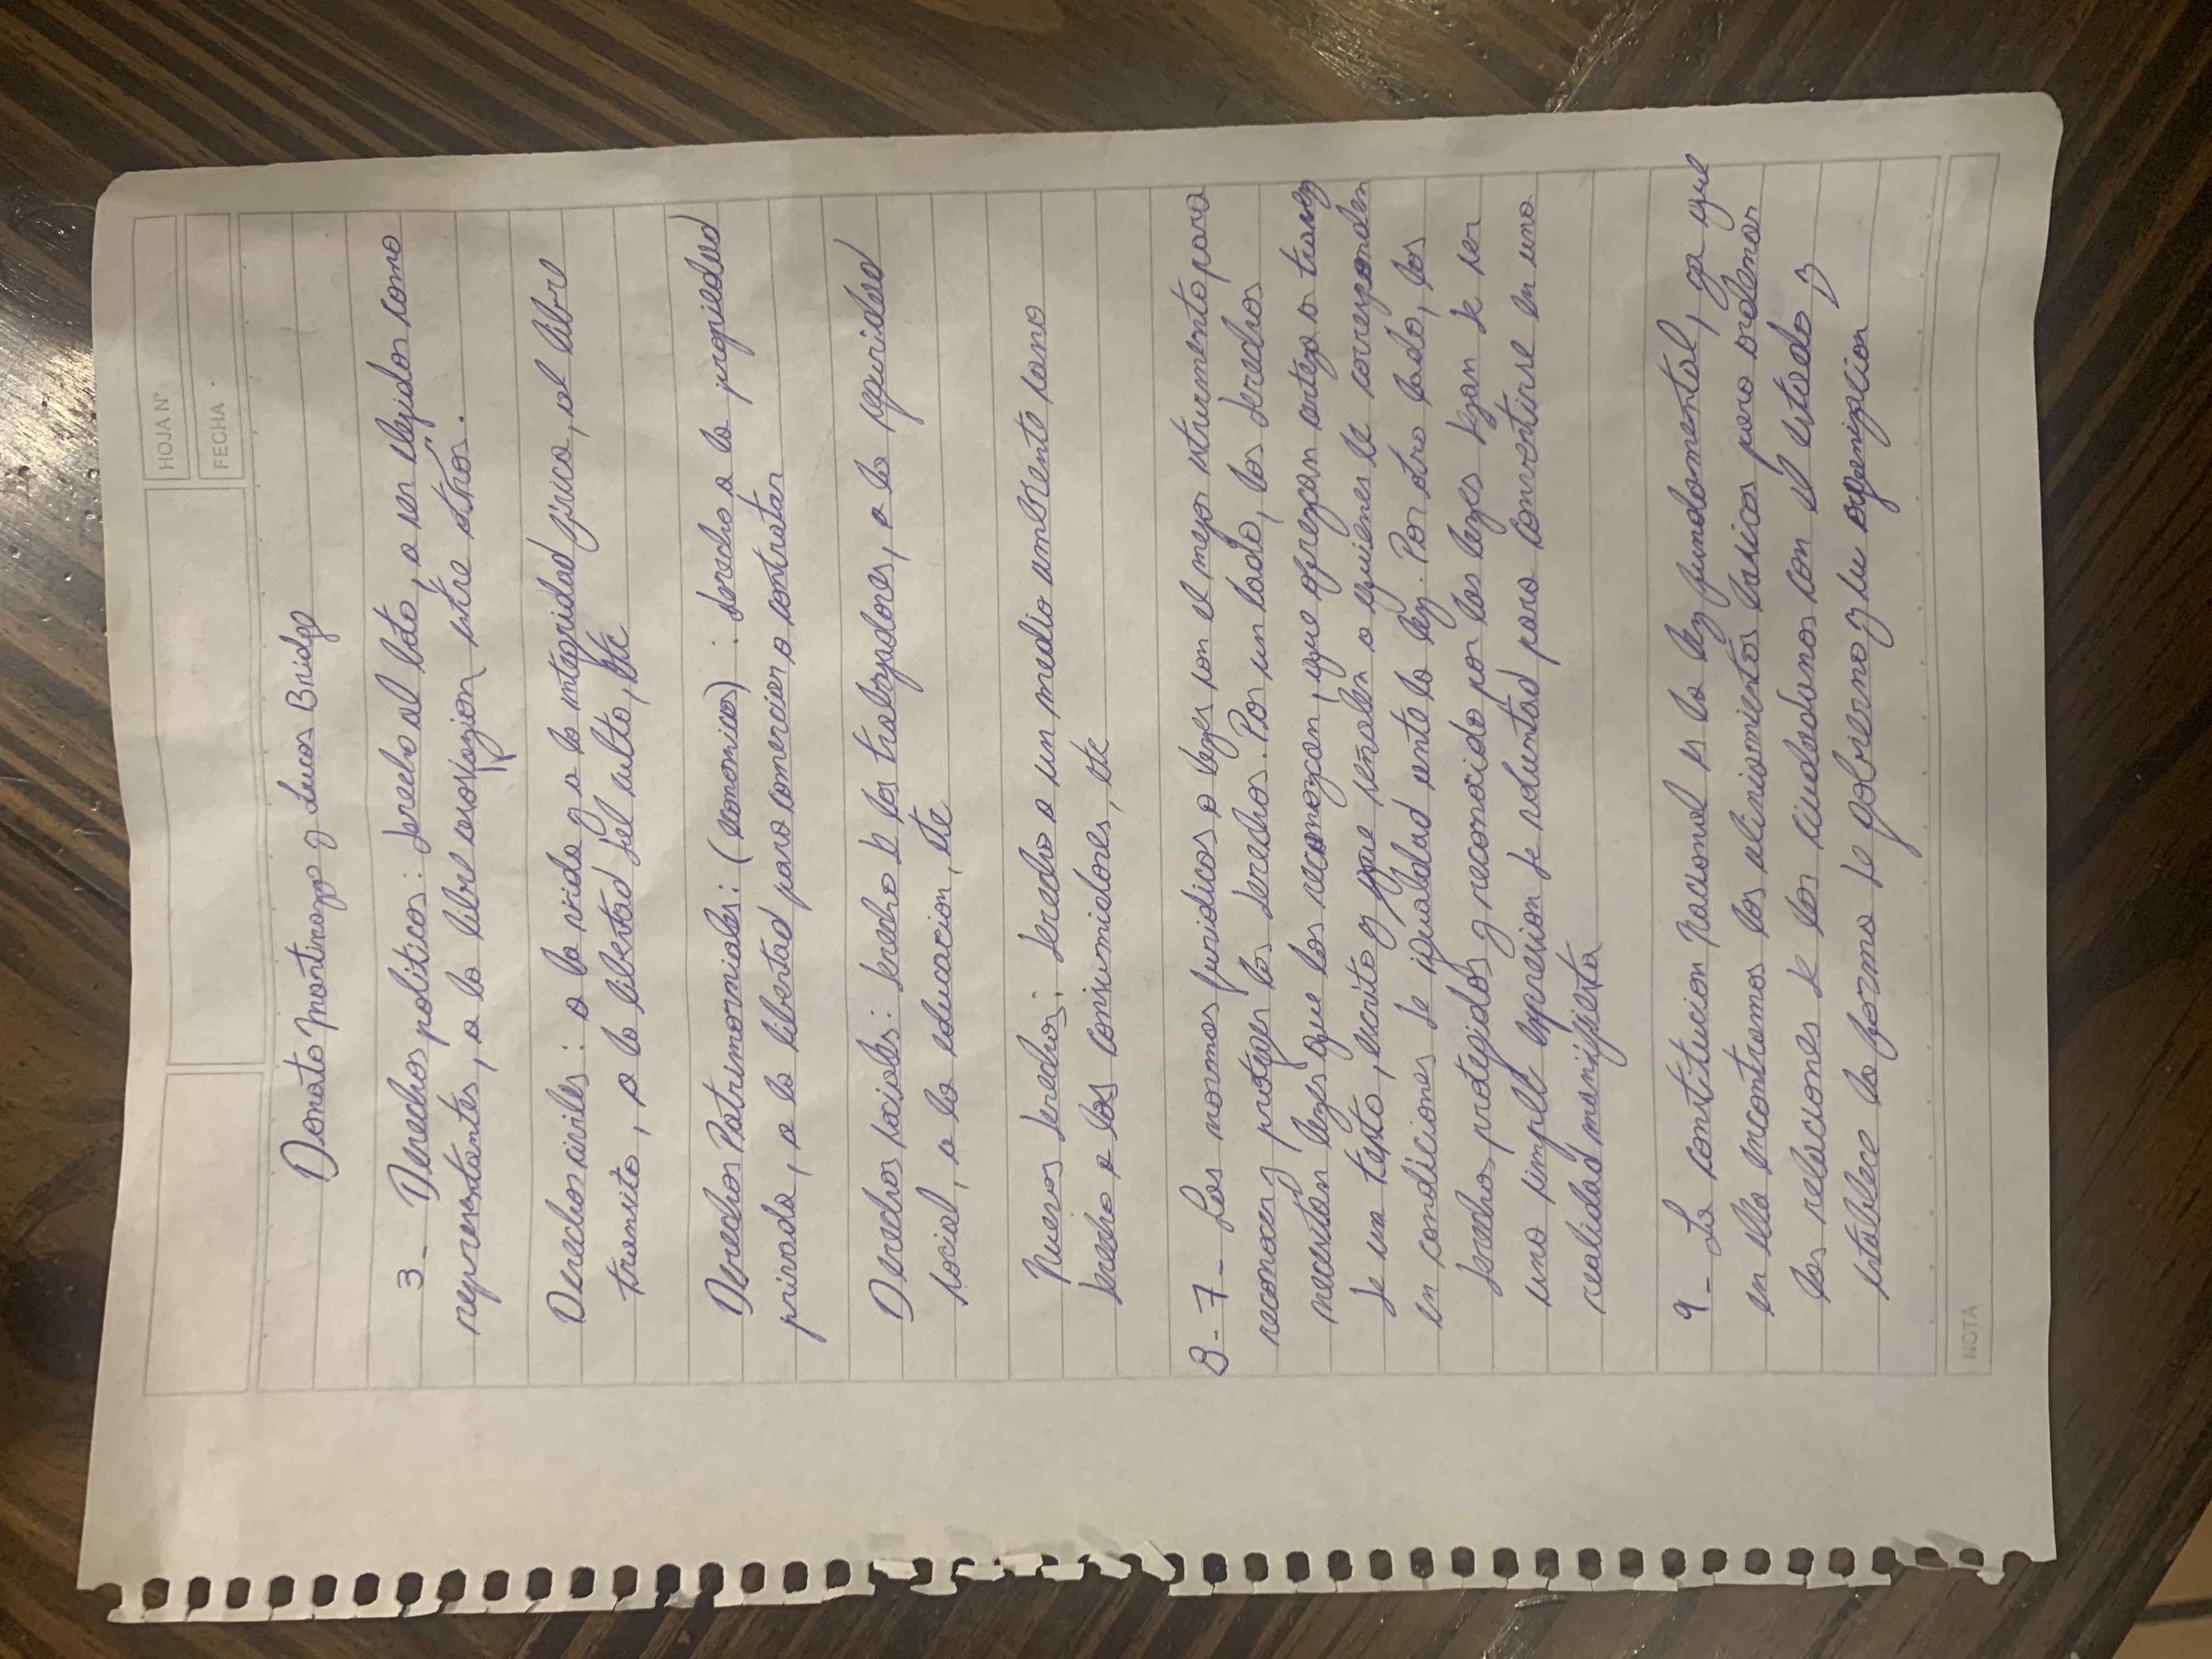 HOJA N°
FECHA
Donato Martinazzo y Lucas Bridgo
3_ Derechos politicos: derecho al voto, a ser elejidos como
representantes, a la libre asociazion, entre otros.
Derechos civiles: a la vida y a la integridad fisica, al libre
transito, a la libertad del culto, etc
Derechos Patrimoniales: (economicos): derecho a la propiedad
privada, a la libertad para comerciar o contratar
Derechos sociales: derecho de los trabajadores, a la seguridad
social, a la educacion, etc
Nuevos derechos: derecho a un medio ambiente sano
derecho a los consumidores, etc
8-7_ Las normas juridicas o leyes son el mejor isturmento para
reconocer y proteger los derechos. Por un lado, los derechos
necesitan leyes que los reconozcan, que ofrezcan
de un texto, escrito y que señalen a quienes le corresponden
en condiciones de igualdad ente la ley. Por otro lado, los
derecho protegidos y reconocido por las leyes dejan de ser
una simple expresion de voluntad para convertirse en una
realidad manifiesta
9_ La contitucion Nacional es la ley fundamental, ya que
en ella encontramos los aliniamientos basicos para ordenar
las relaciones de los ciudadanos con el estado y
establece la forma de gobierno y su organizacion
NOTA